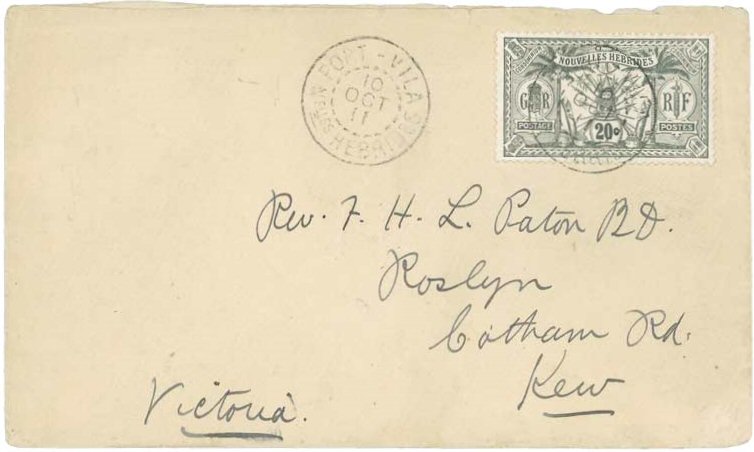 PORT-VILA
10
OCT
11
Nles HEBRIDES
NOUVELLES HEBRIDES
G R
R F
POSTAGE
20c
POSTES
Rev. F. H. L. Paton B.D.
Roslyn
Cotham Rd.
Kew
Victoria.